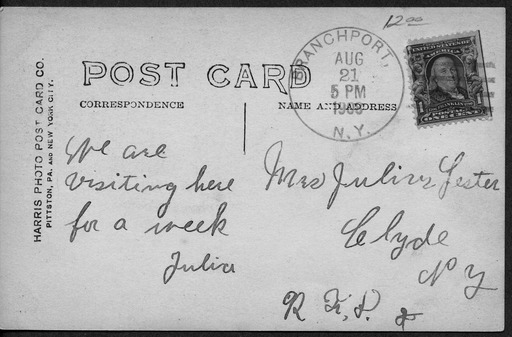 12.00
BRANCHPORT,
AUG
21
5 PM
N.Y.
UNITED STATES OF AMERICA
FRANKLIN
POSTAGE
1 ONE CENT 1
POST CARD
CORRESPONDENCE
NAME AND ADDRESS
HARRIS PHOTO POST CARD CO.
PITTSTON, PA. AND NEW YORK CITY.
We are
visiting here
for a week
Julia
Mrs Julius Lester
Clyde
N Y
R. F. D.